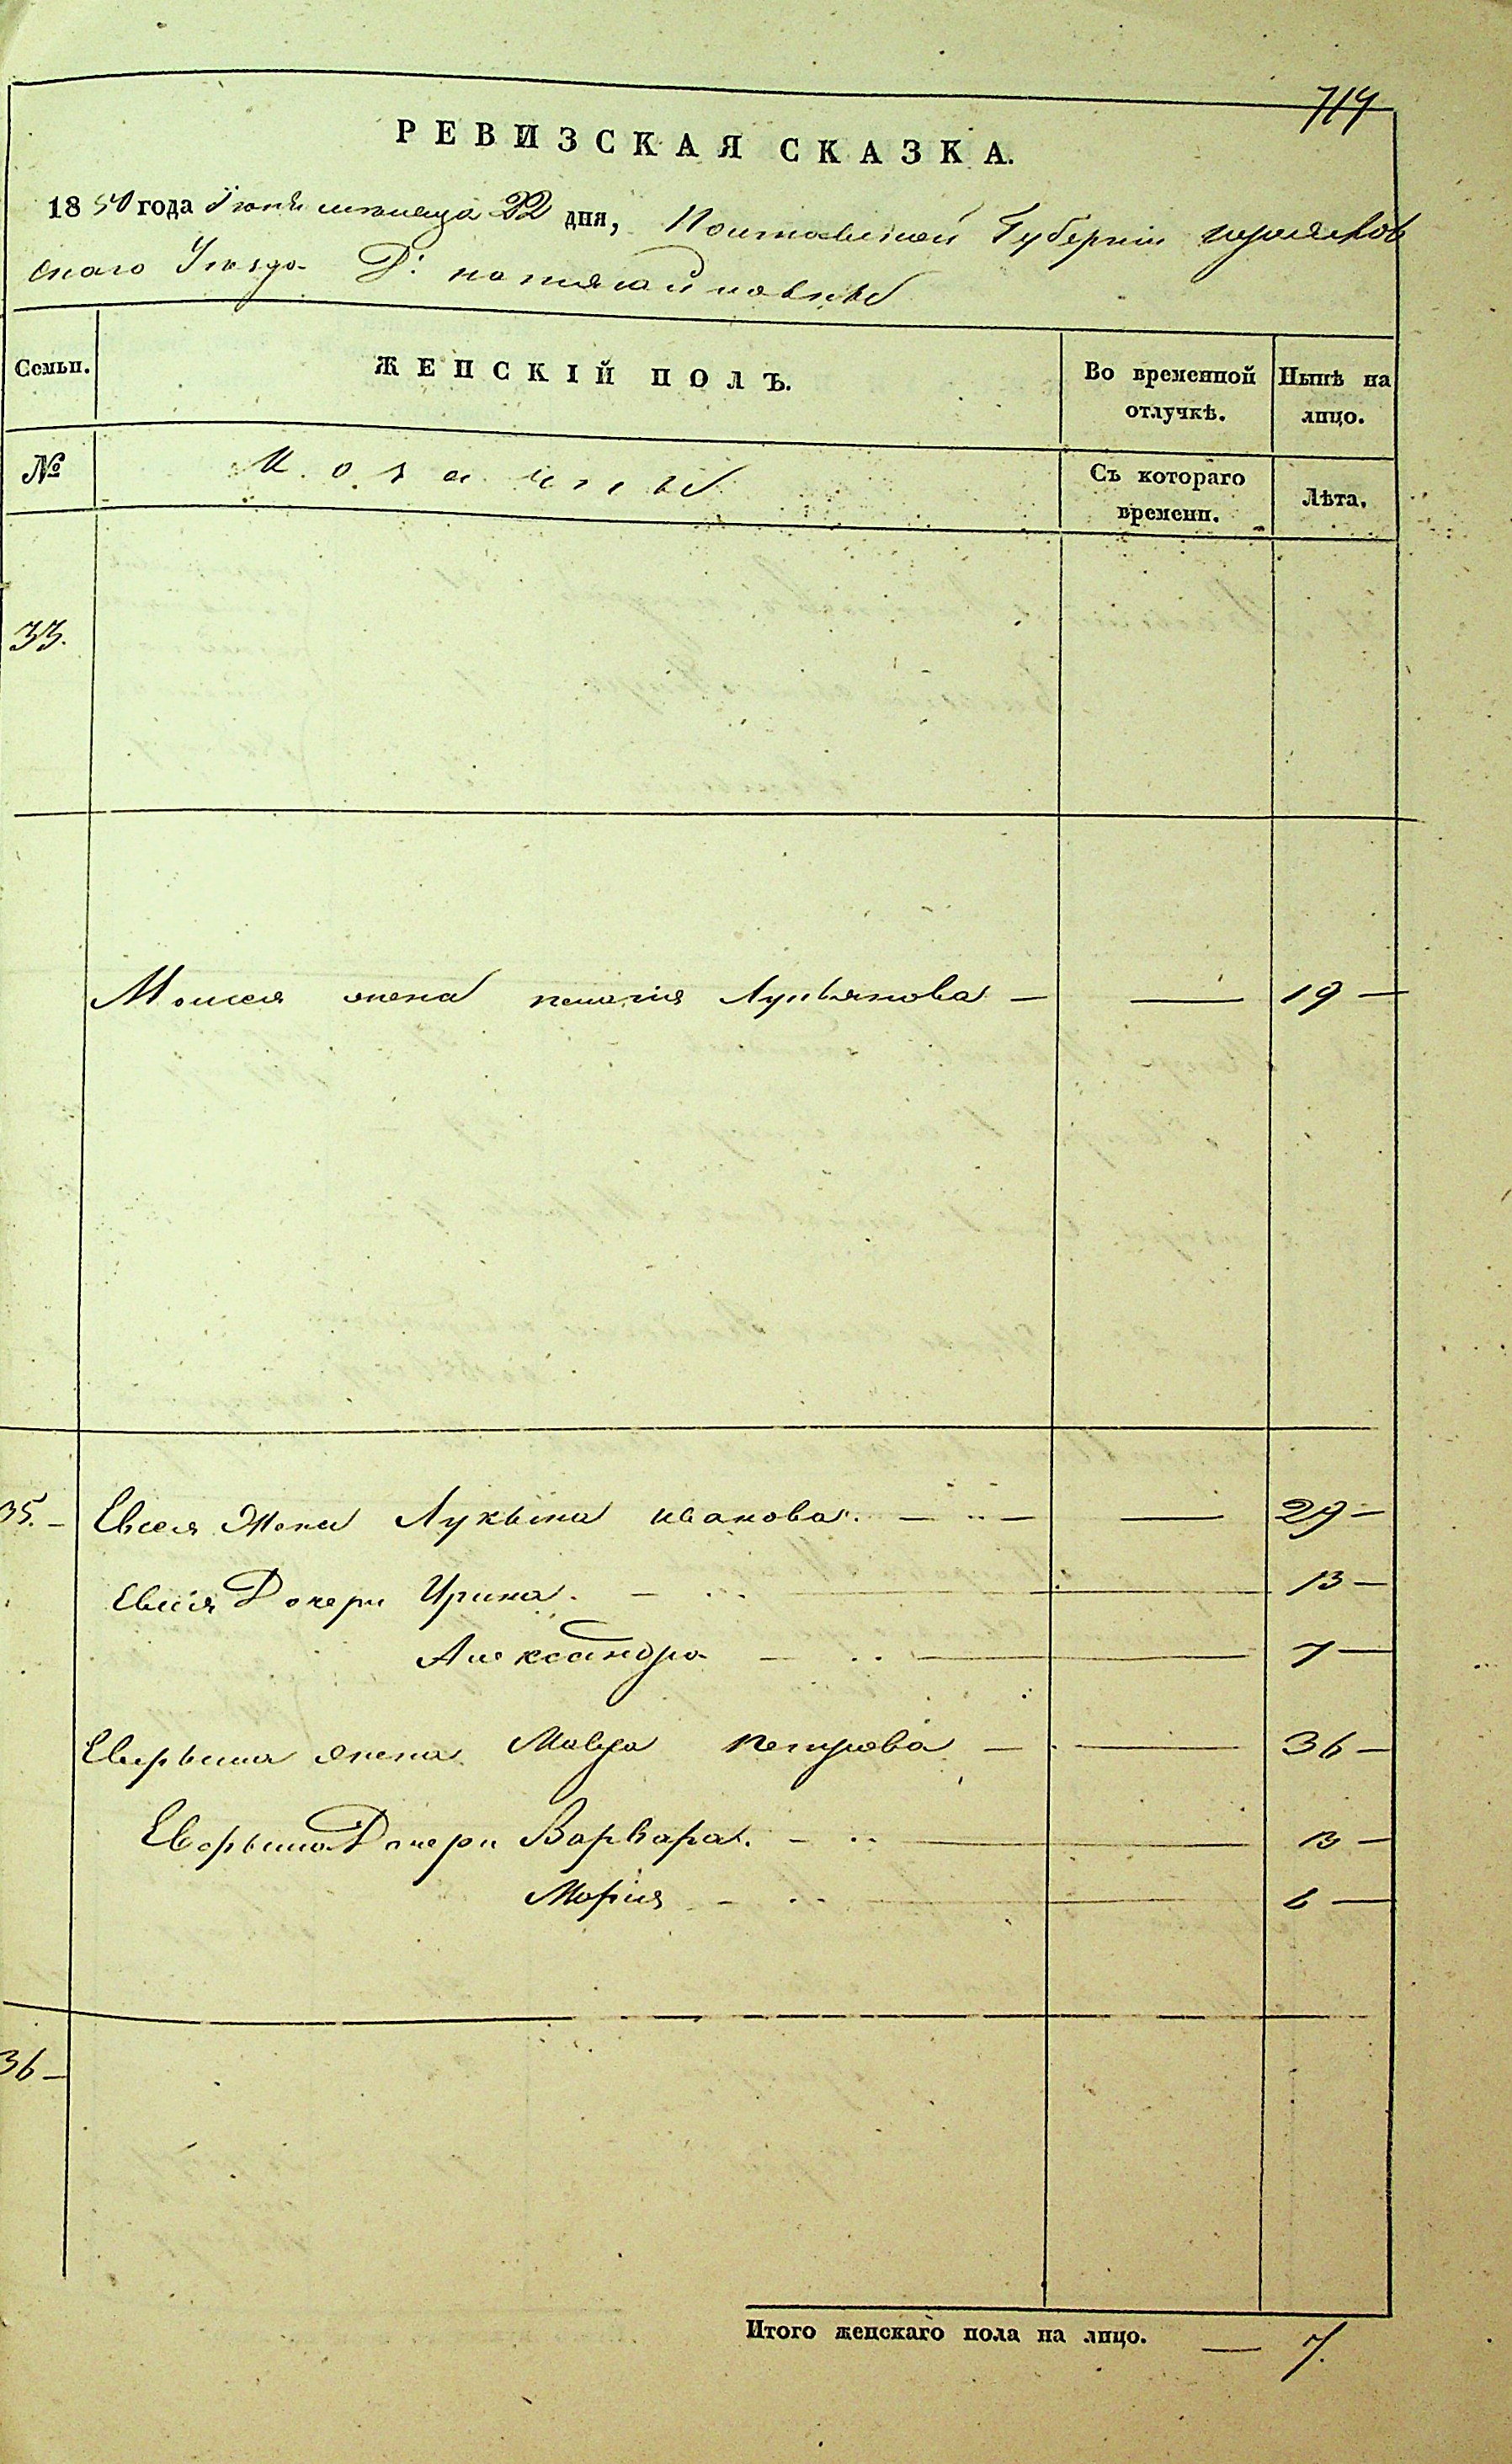 714
РЕВИЗСКАЯ СКАЗКА.
1850 года Июня месяца 22 дня, Полтавской Губернии
скаго Уезда Д:
Семьи.
ЖЕНСКІЙ ПОЛЪ.
Во временной отлучкѣ.
Нынѣ на лицо.
№
Козачій
Съ котораго времени.
Лѣта.
33.
Моисея жена Пелагия Лукьянова — — 19 —
35. — Евсея Жена Лукьяна Иванова. — — 29 —
Евсея Дочери Ирина. — — 13 —
Александра — — 7 —
жена Мавра Петрова — — 36 —
Дочери Варвара. — — 13 —
Мария — — 6 —
36 —
Итого женскаго пола на лицо. — 7.